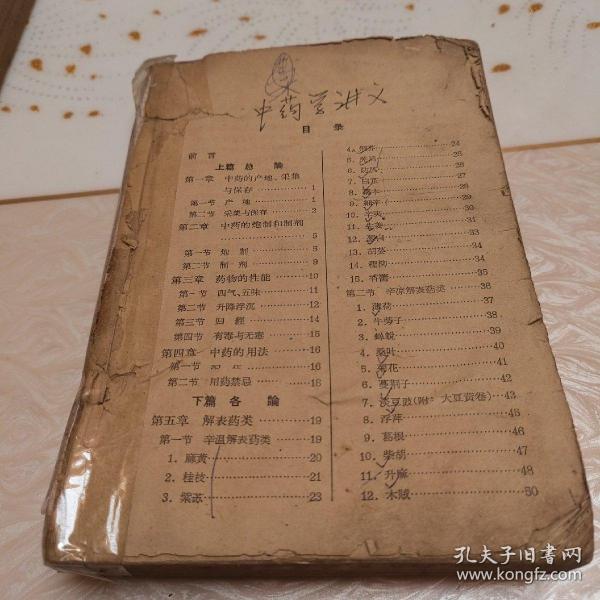 中药学讲义
目 录
前 言
上篇 总 論
第一章 中药的产地、采集
与保存 1
第一节 产 地 1
第二节 采集与保存 2
第二章 中药的炮制和制剂
5
第一节 炮 制 5
第二节 制 剂 9
第三章 药物的性能 10
第一节 四气、五味 11
第二节 升降浮沉 12
第三节 归 經 14
第四节 有毒与无毒 15
第四章 中药的用法 16
第一节 16
第二节 用药禁忌 18
下篇 各 論
第五章 解表药类 19
第一节 辛温解表药类 19
1. 麻黄 20
2. 桂枝 21
3. 紫苏 23
4. 荆芥 24
5. 25
6. 防风 26
7. 白芷 27
8. 藁本 28
9. 29
10. 30
11. 生姜 31
12. 葱白 33
13. 胡荽 34
14. 檉柳 35
15. 香薷 35
第二节 辛凉解表药类 36
1. 薄荷 37
2. 牛蒡子 38
3. 蝉蜕 39
4. 桑叶 40
5. 菊花 41
6. 蔓荆子 42
7. 淡豆豉(附:大豆黄卷) 43
8. 浮萍 45
9. 葛根 46
10. 柴胡 47
11. 升麻 48
12. 木贼 50
孔夫子旧书网
www.kongfz.com